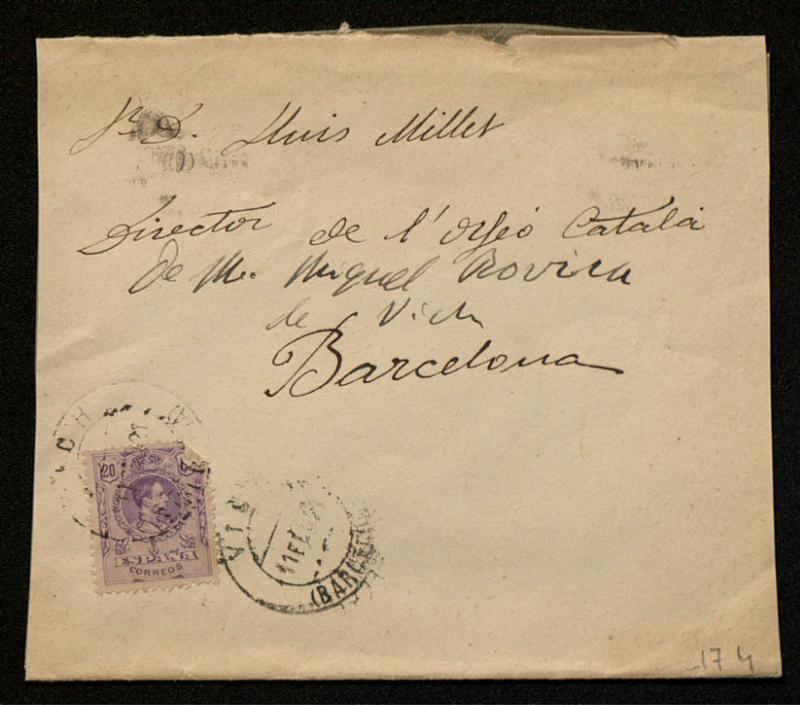 Sr. D. Lluis Millet
Director de l'Orfeó Català
de M. Miquel Rovira
de Vich
Barcelona
20
ESPAÑA
CORREOS
11 FEB
(BARCELONA)
174